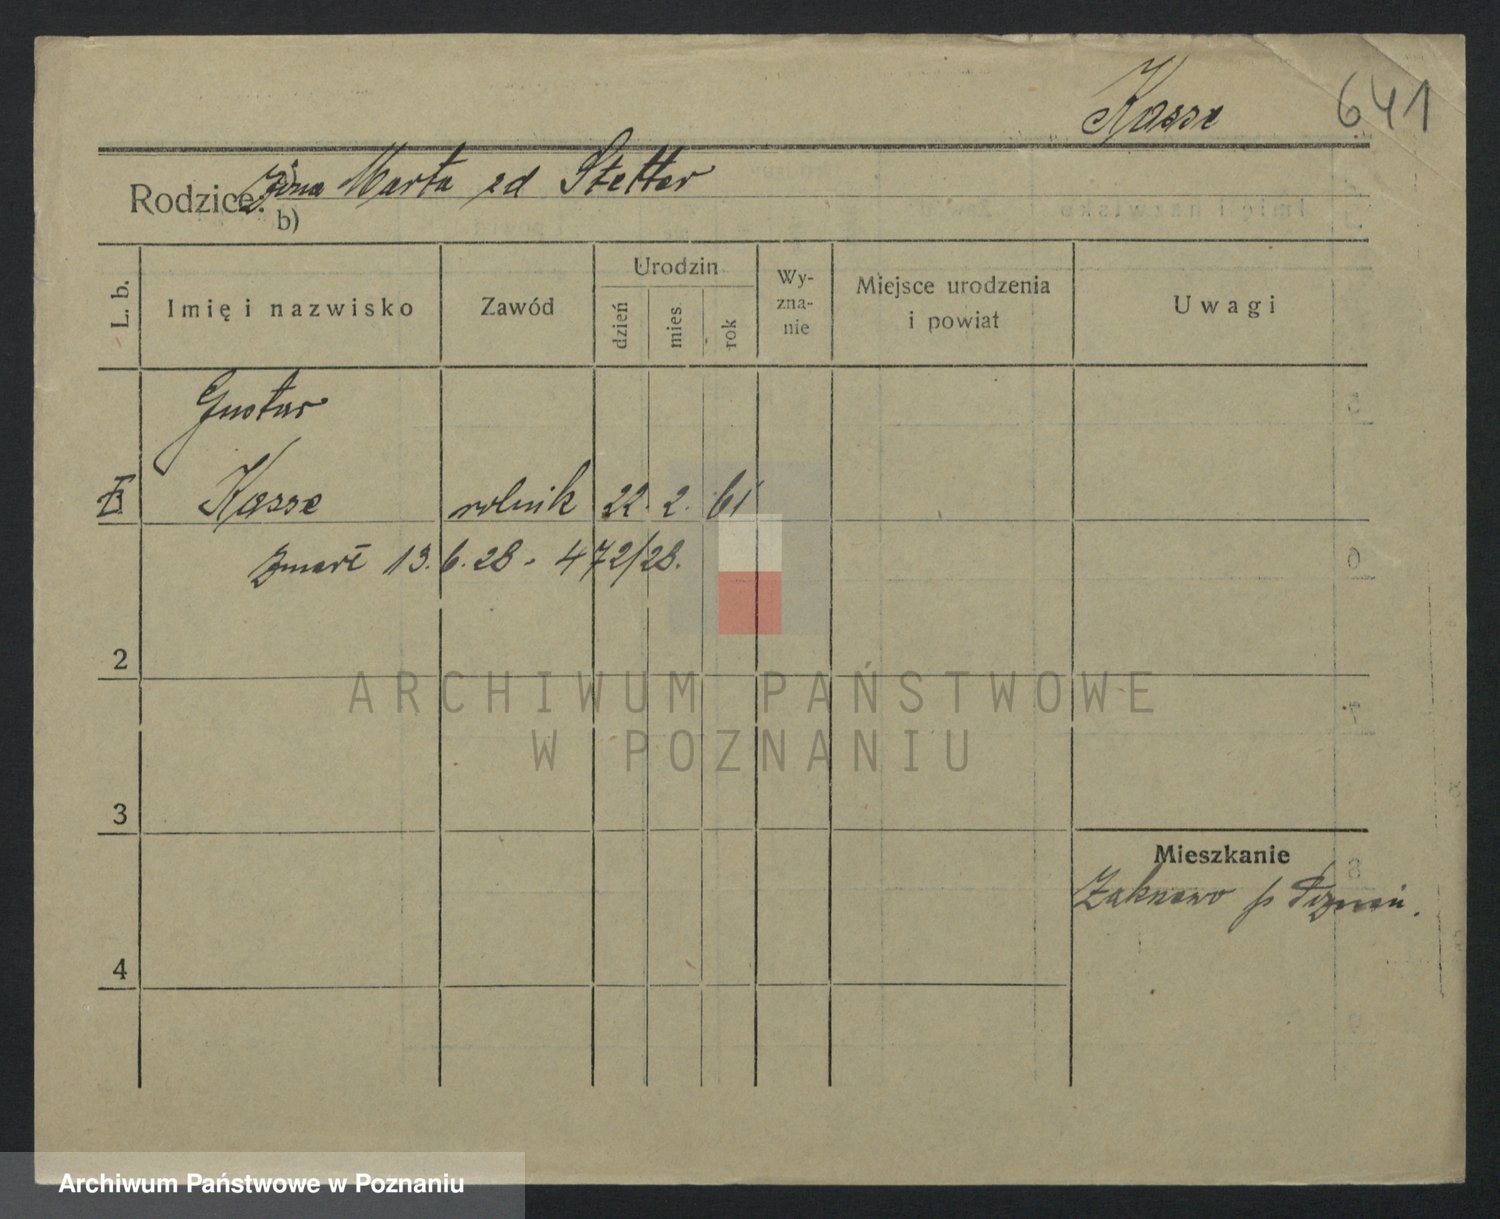 Kasse 641
Rodzice: a) żona Marta zd Stetter
b)
L. b.
Imię i nazwisko
Zawód
Urodzin
dzień
mies.
rok
Wy-
zna-
nie
Miejsce urodzenia
i powiat
Uwagi
Gustav
Kasse rolnik 22. 2. 61
zmarł 13. 6. 28 - 472/28.
2
3
4
Mieszkanie
p Poznań.
ARCHIWUM PAŃSTWOWE
W POZNANIU
Archiwum Państwowe w Poznaniu